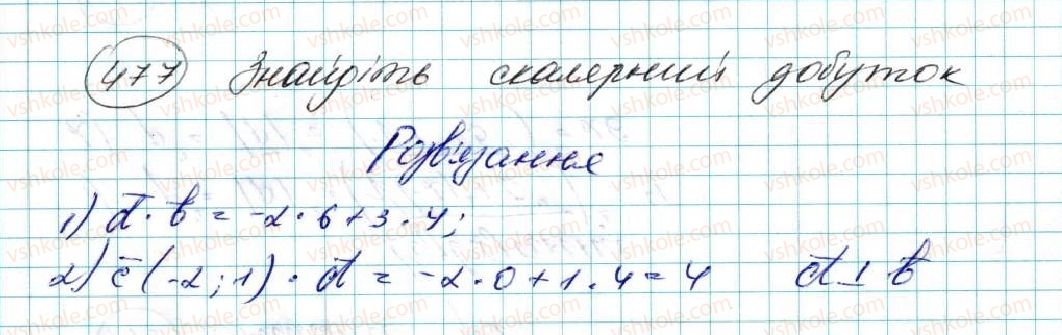 477 Знайдіть скалярний добуток
Розв'язання
1) a⃗ · b⃗ = -2 · 6 + 3 · 4;
2) c̄ (-2; 1) · d⃗ = -2 · 0 + 1 · 4 = 4 a⃗ ⊥ b⃗